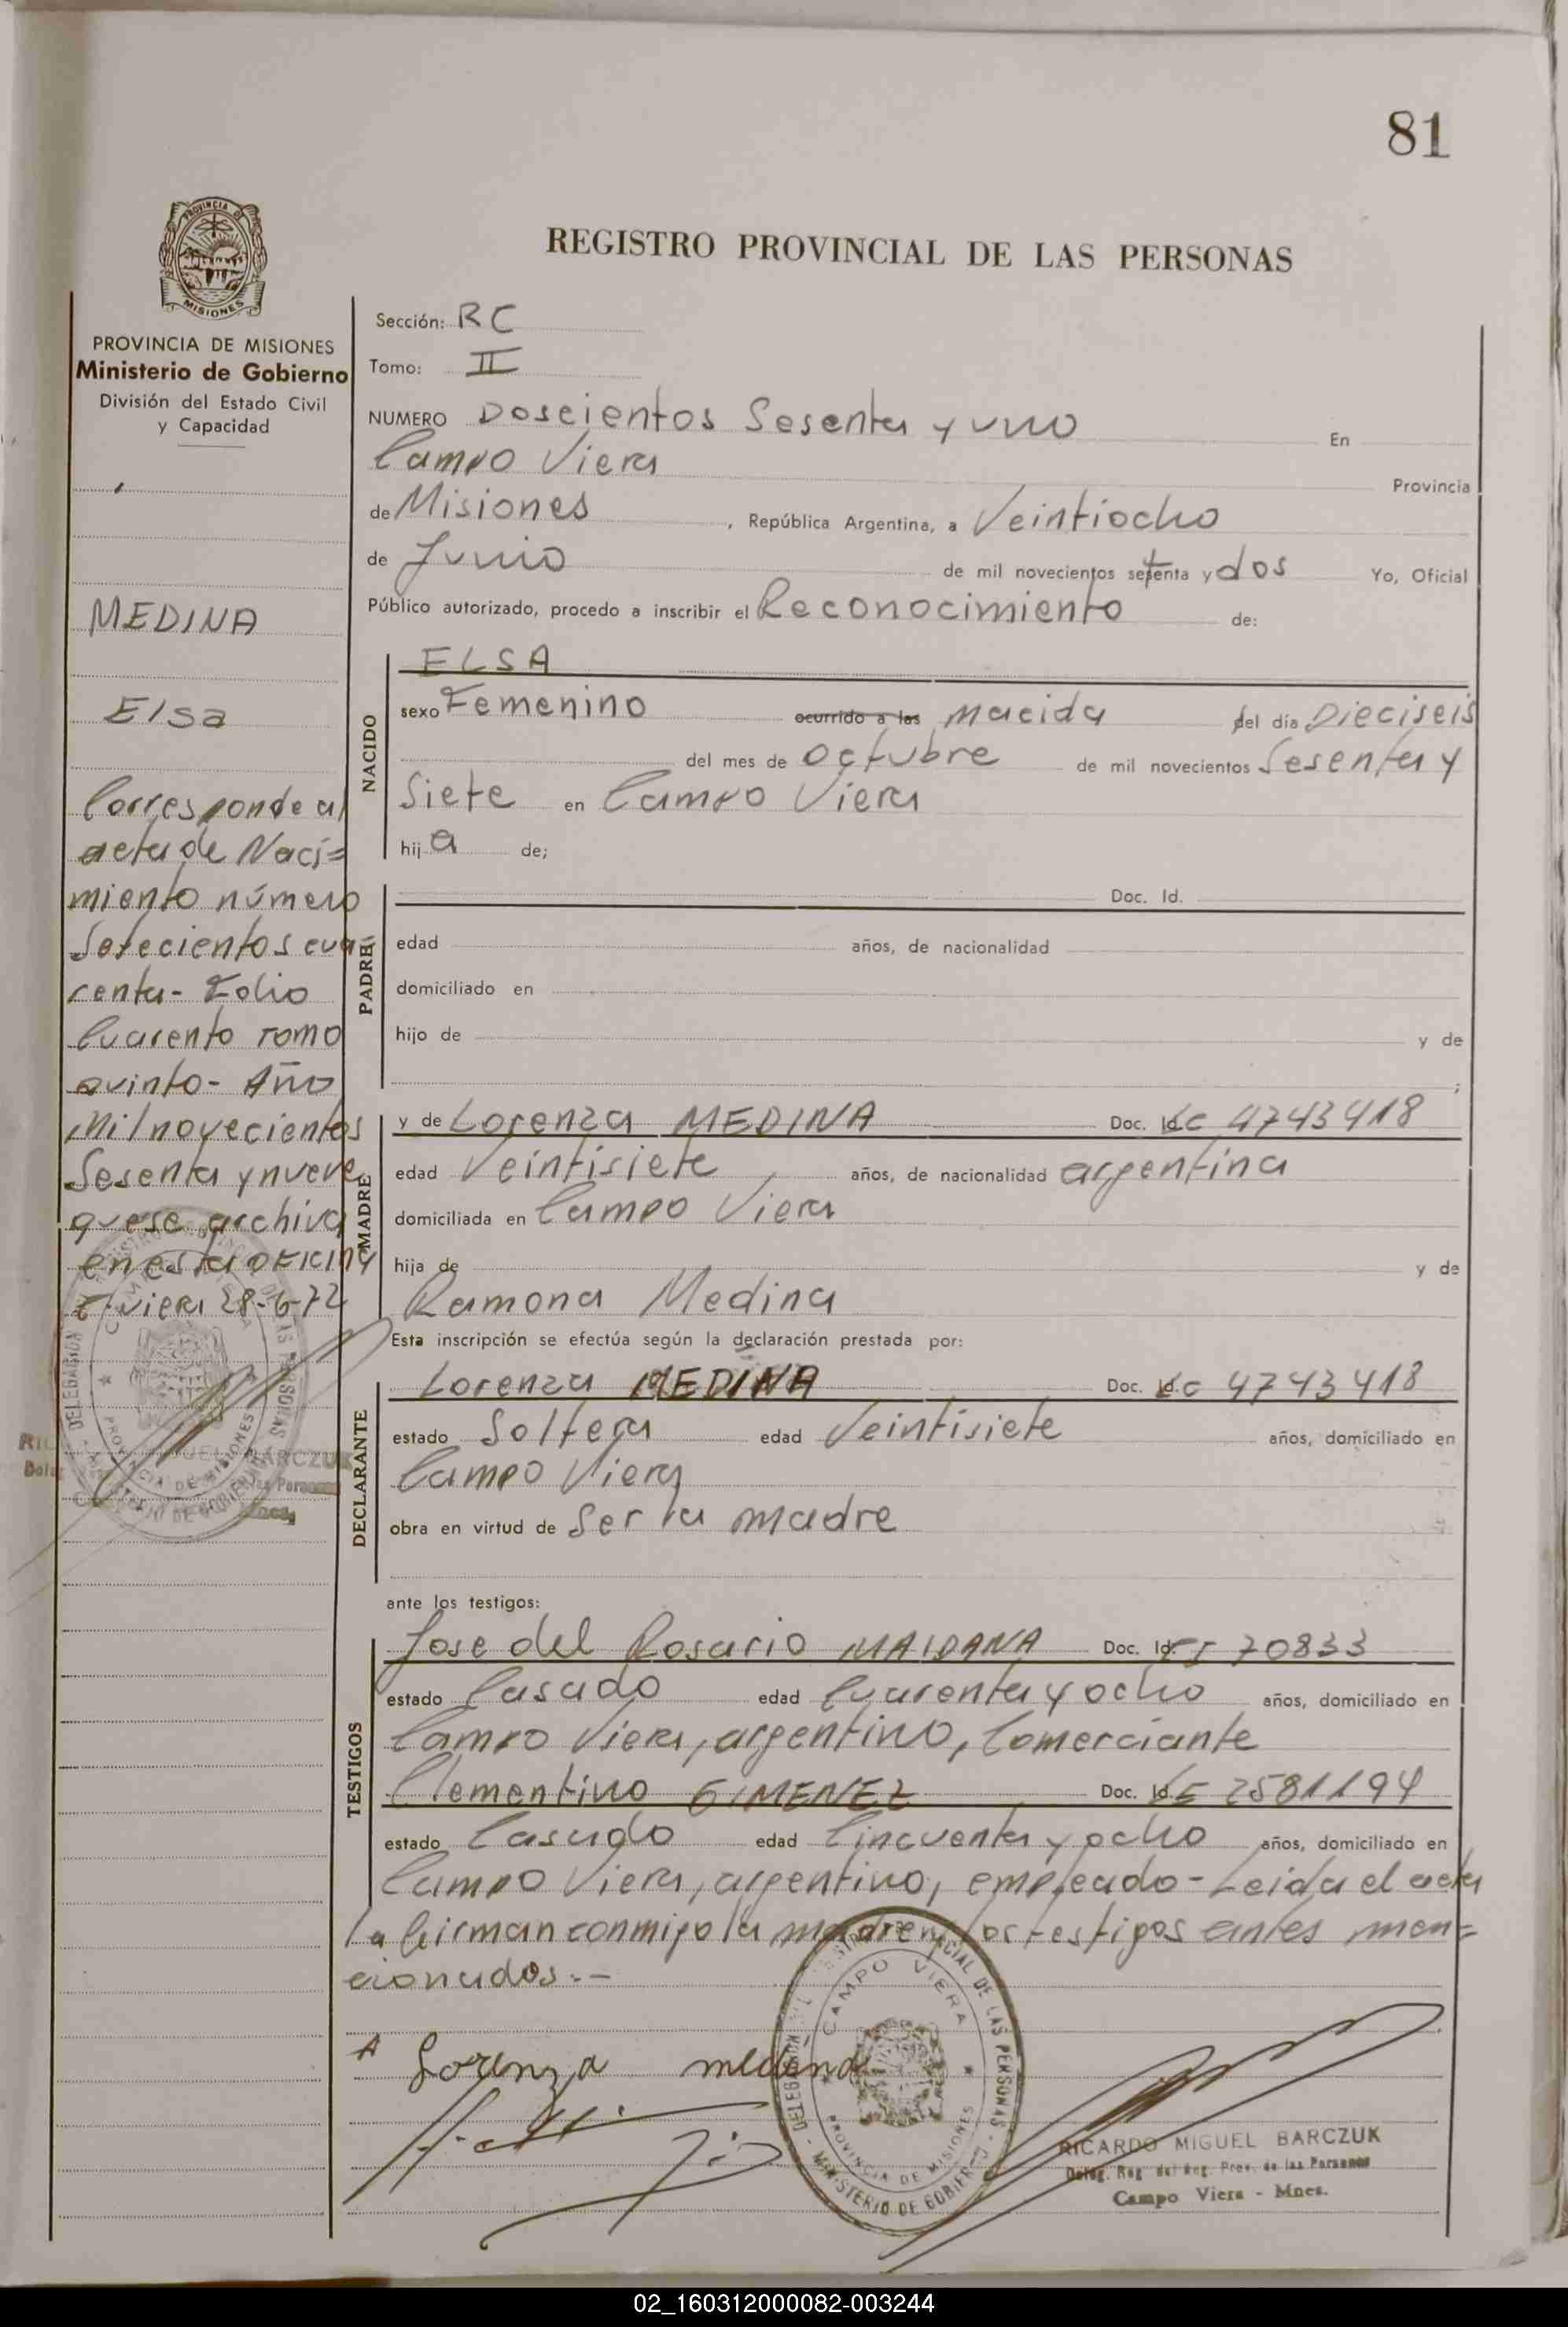 81
PROVINCIA DE
MISIONES
REGISTRO PROVINCIAL DE LAS PERSONAS
PROVINCIA DE MISIONES
Ministerio de Gobierno
División del Estado Civil
y Capacidad
MEDINA
Elsa
Corresponde al
acta de Naci=
miento número
Setecientos cua=
renta- Folio
Cuarenta Tomo
quinto- Año
Mil novecientos
Sesenta y nueve
que se archiva
en esta OFICINA
C. Viera 28-6-72
Sección: RC
Tomo: II
NUMERO Doscientos Sesenta y uno En
Campo Viera Provincia
de Misiones , República Argentina, a Veintiocho
de Junio de mil novecientos setenta y dos Yo, Oficial
Público autorizado, procedo a inscribir el Reconocimiento de:
NACIDO
ELSA
sexo Femenino ocurrido a las nacida del día Dieciseis
del mes de Octubre de mil novecientos Sesenta y
Siete en Campo Viera
hij a de;
PADRE
Doc. Id.
edad años, de nacionalidad
domiciliado en
hijo de y de
;
MADRE
y de Lorenza MEDINA Doc. LC 4743418
edad Veintisiete años, de nacionalidad argentina
domiciliada en Campo Viera
hija de y de
Ramona Medina
Esta inscripción se efectúa según la declaración prestada por:
DECLARANTE
Lorenza MEDINA Doc. Id. LC 4743418
estado Soltera edad Veintisiete años, domiciliado en
Campo Viera
obra en virtud de Ser la madre
ante los testigos:
TESTIGOS
Jose del Rosario MAIDANA Doc. Id. 70833
estado Casado edad Cuarenta y ocho años, domiciliado en
Campo Viera, argentino, Comerciante
Clementino GIMENEZ Doc. Id. LE 2581194
estado Casado edad Cincuenta y ocho años, domiciliado en
Campo Viera, argentino, empleado- Leida el acta
la firman conmigo la madre y los testigos antes men=
cionados.-
Lorenza medina
DELEGACIÓN REGISTRO PROVINCIAL DE LAS PERSONAS
CAMPO VIERA
PROVINCIA DE MISIONES
MINISTERIO DE GOBIERNO
RICARDO MIGUEL BARCZUK
Deleg. Reg. del Reg. Prov. de las Personas
Campo Viera - Mnes.
02_160312000082-003244